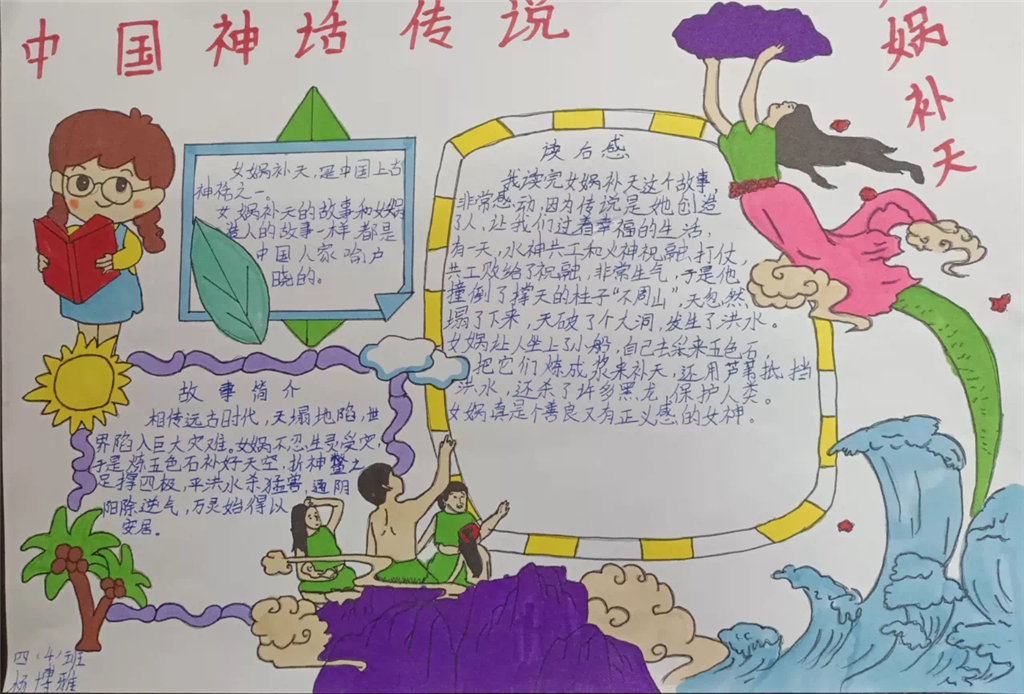 中国神话传说
女娲补天
女娲补天，是中国上古
神话之一。
女娲补天的故事和女娲
造人的故事一样都是
中国人家哈户
晓的。
故事简介
相传远古时代，天塌地陷，世
界陷入巨大灾难。女娲不忍生灵受灾，
于是炼五色石补好天空，折神鳖之
足撑四极，平洪水杀猛害，通阴
阳除逆气，万灵始得以
安居。
读后感
我读完女娲补天这个故事，
非常感动，因为传说是她创造
了人，让我们过着幸福的生活，
有一天，水神共工和火神祝融，打仗，
共工败给了祝融，非常生气，于是他
撞倒了撑天的柱子“不周山”，天忽然
塌了下来，天破了个大洞，发生了洪水。
女娲让人坐上了小船，自己去采来五色石，
把它们炼成浆来补天，还用芦苇抵挡
洪水，还杀了许多黑龙，保护人类。
女娲真是个善良又有正义感的女神。
四（4）班
杨博雅